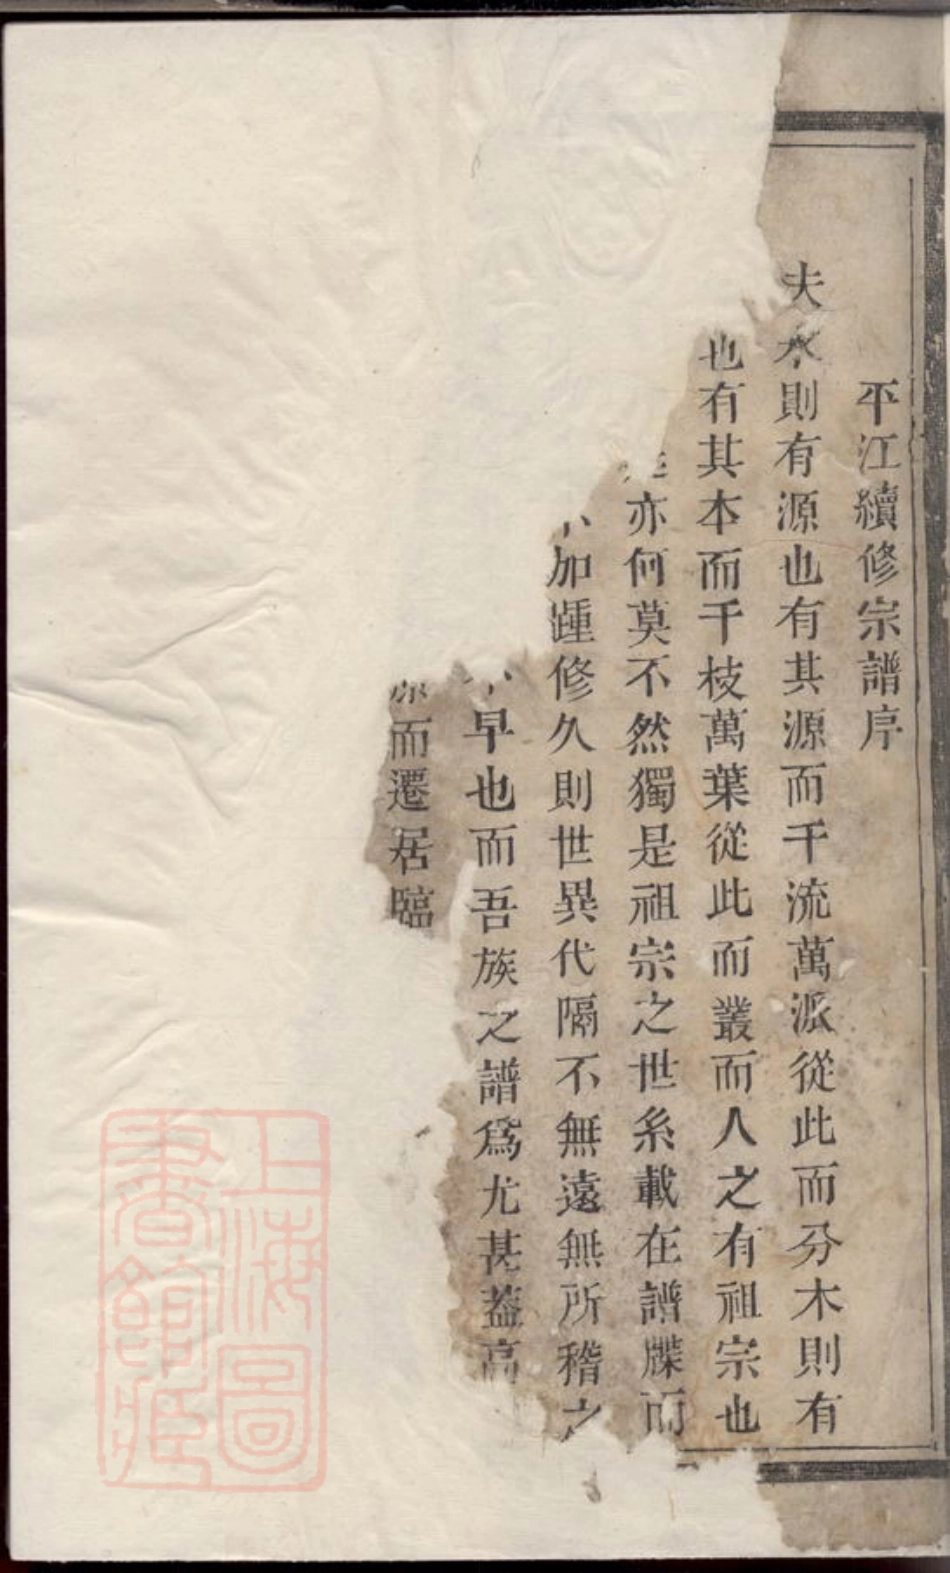 平江續修宗譜序
夫水則有源也有其源而千流萬派從此而分木則有
也有其本而千枝萬葉從此而叢而人之有祖宗也
亦何莫不然獨是祖宗之世系載在譜牒而
加踵修久則世異代隔不無遠無所稽之
早也而吾族之譜爲尤甚蓋高
而遷居臨
上海圖
書館藏